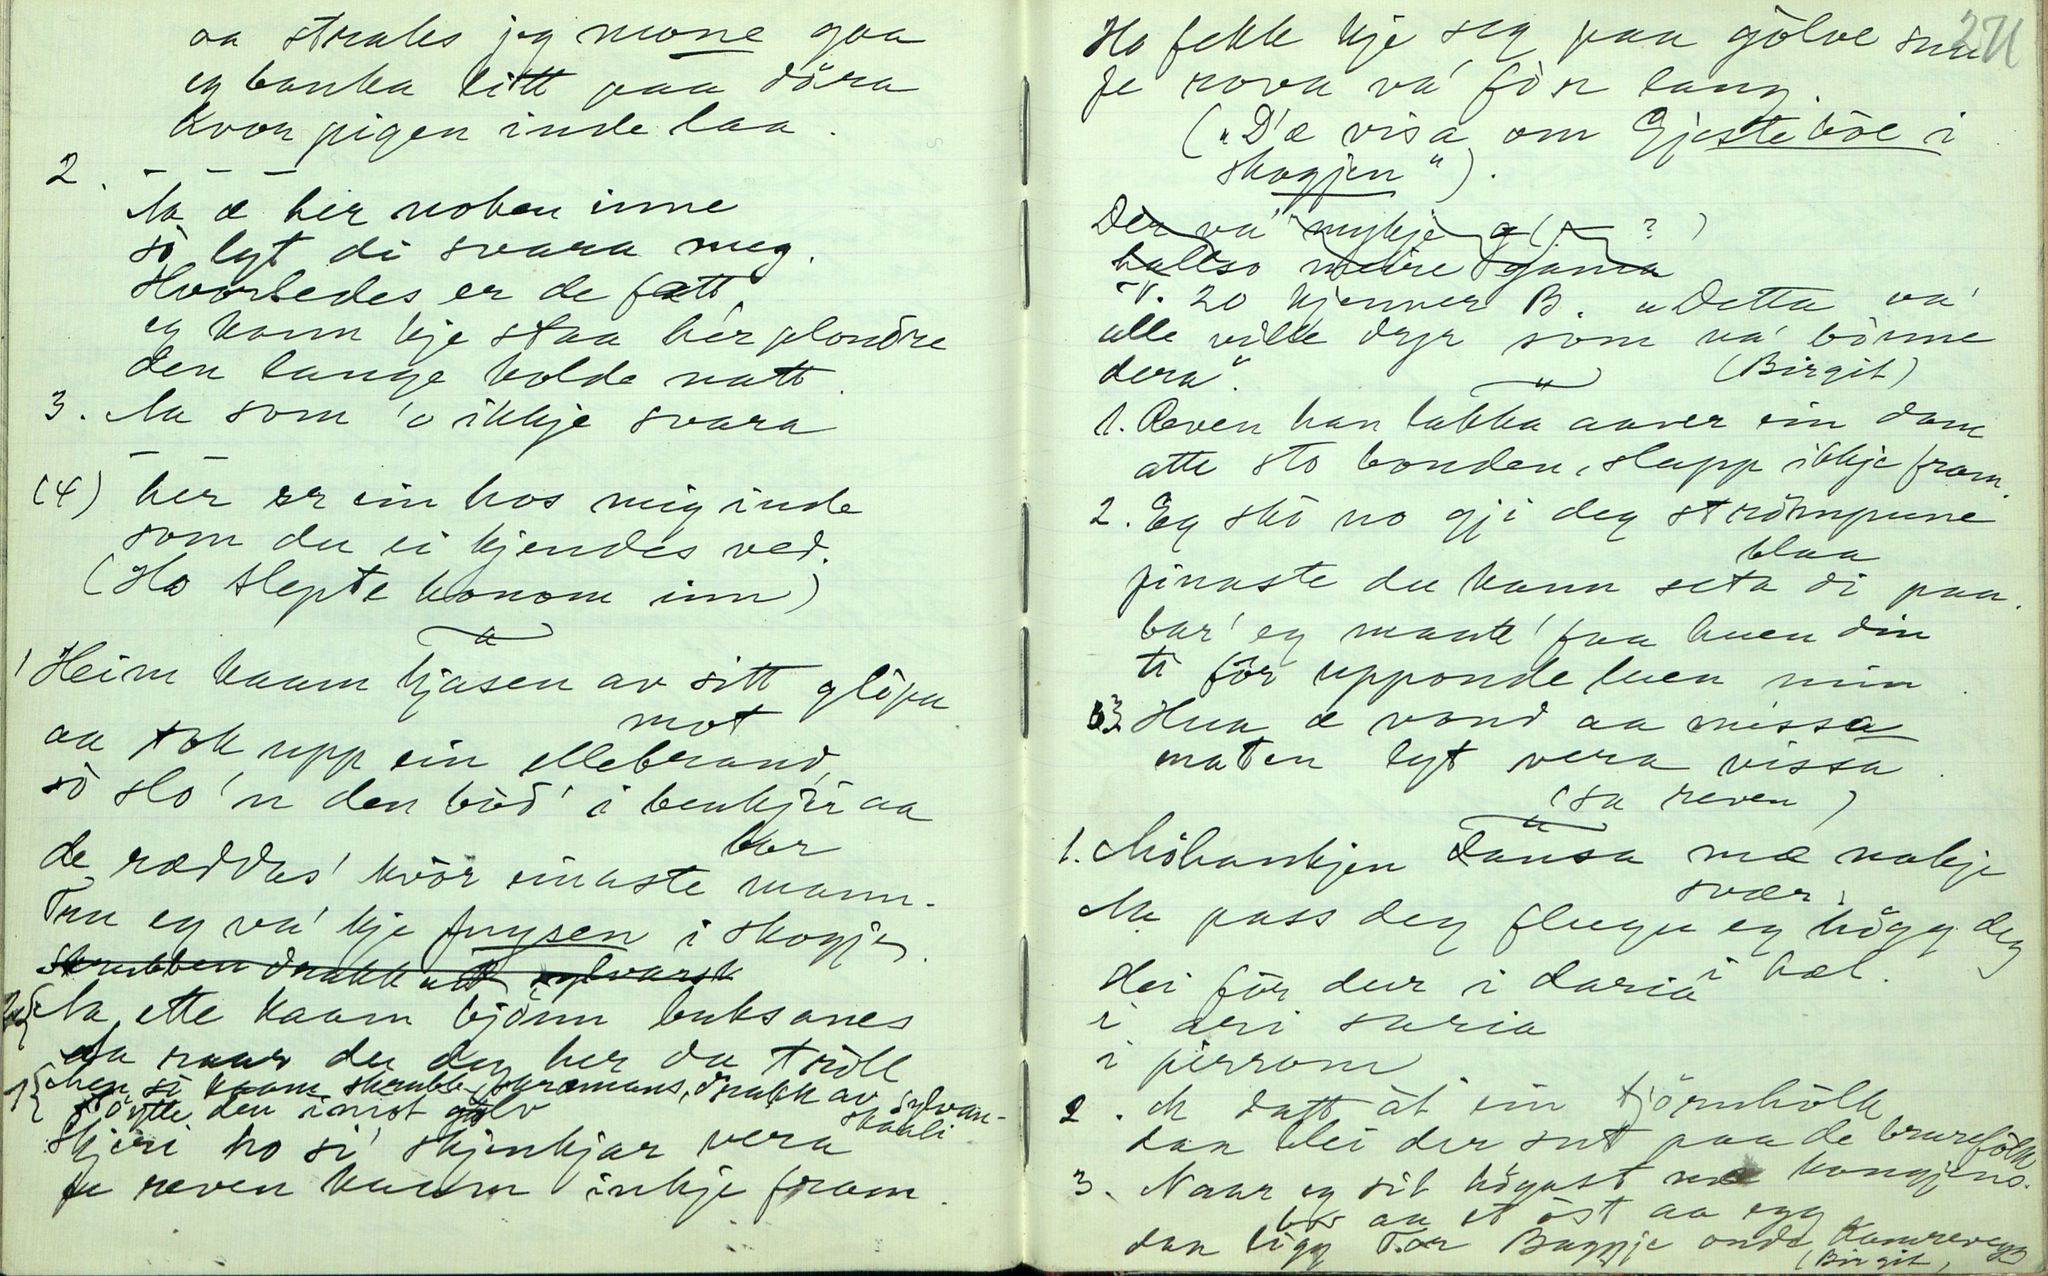 aa straks jeg mone gaa
eg banka litt paa döra
kvor pigen inde laa.
2. — — —
Aa æ her noken inne
sò lyt di svara meg.
Hvorledes er de fatt,
eg kann kje staa her plondre
den lange kolde natt.
3. Aa som 'o ikkje svara
— —
(4) her er ein hos mig inde
som du ei kjendes ved.
(Ho slepte honom inn)
"
1 Heim kaam kjasen av sitt glöpa
mot
aa tok upp ein ellebrand,
sò slo 'n den böd' i benkjir aa
bor
de ræddas' kvör einaste mann.
Tru eg va' kje fuysen i skogje.
Skrubben drakk ut sylvarsk
2 Aa ette kaam björnn buksanes
aa snar du deg her du tröll
1 Men sò kaam skrubb skræmans, drakk av sylvar-
skaali
stöytte den imot golv
Skjeri ho si' skjenkjar vera
fe reven kaam inkje fram.
271
Ho fekk kje seg paa gölve snu
fe rova va' för lang.
("D'æ visa om Gjestebòe i
skogjen").
Der va' mykje g ( — ? )
halso meire gama
v. 20 kjenner B. "Detta va'
alle ville dyr som va' bönne
dera". (Birgit)
"
1. Reven han lakka aaver ein dam
atte sto bonden, slapp ikkje fram.
2. Eg skò no gji deg strömpune
blaa
finaste du kann seta di paa.
bar' eg maatte' faa huen din
ti för upponde luen min.
3. Hua æ vond aa missa
maten lyt vera vissa.
(sa reven)
"
1. Möhankjen dansa mæ nokje
svær,
Aa pass deg fluga eg högg deg
i hæl.
Hei för dur i daria
i ari saria
i pirrom
2. M datt òt ein tjörnhölk
dan blei der sut paa de brurefölk
3. Naar eg sit högast mæ kongjens
bor aa et òst aa egg
dan ligg Tor Baggje onde Kamrevegg
(Birgit)